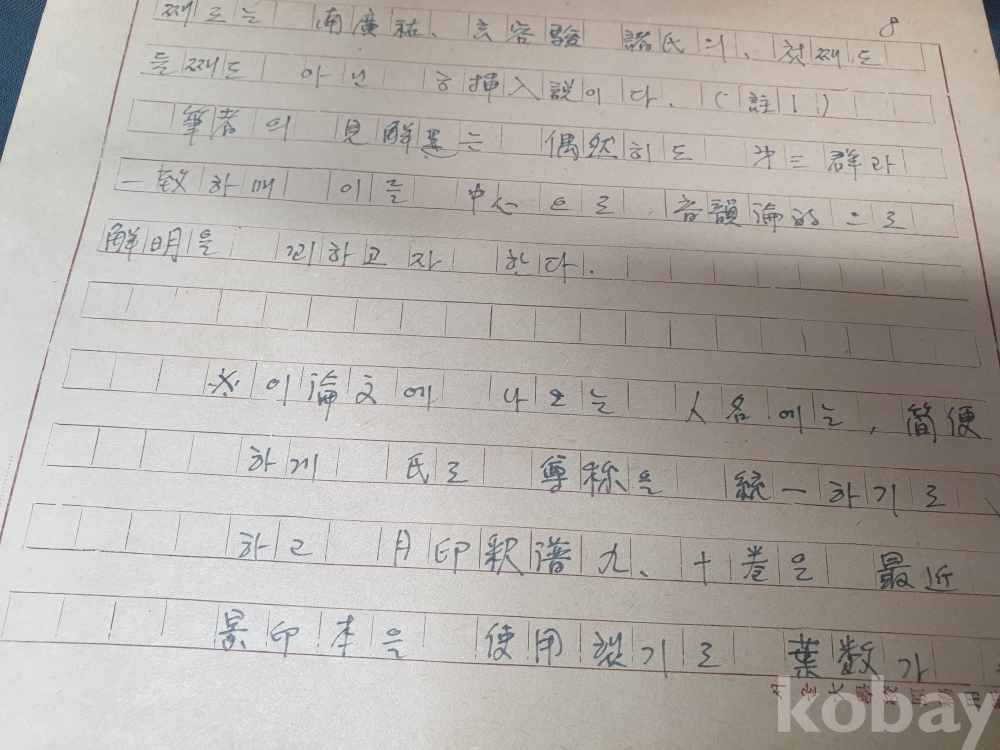 8
째로는 南廣祐、玄容駿 諸氏의、첫째도
둘째도 아닌 ㅎ挿入說이다. (註1)
筆者의 見解는 偶然히도 才三群과
一致하매 이를 中心으로 音韻論的으로
解明을 꾀하고자 한다.
※이 論文에 나오는 人名에는, 簡便
하게 氏로 尊称을 統一하기로
하고 月印釈譜九、十巻은 最近
景印本을 使用했기로 葉数가
kobay